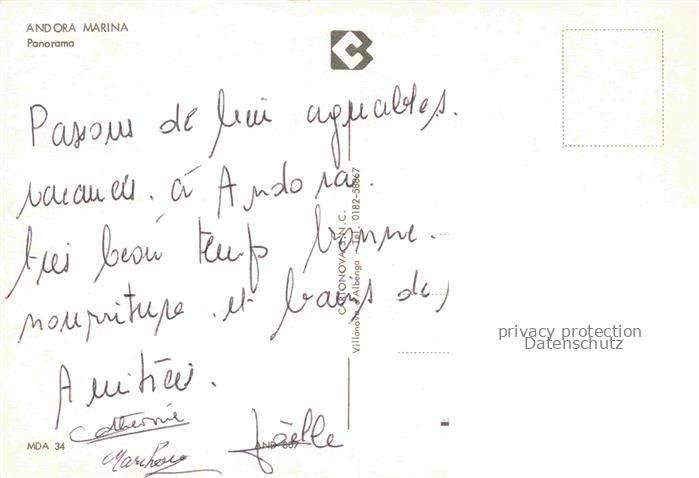 ANDORA MARINA
Panorama
Passons de bien agréables
vacances à Andora.
très beau temps bonne
nourriture et bains de
Amitiés.
Catherine
Joëlle
MDA 34
Villanova d'Albenga Tel. 0182-58867
privacy protection
Datenschutz